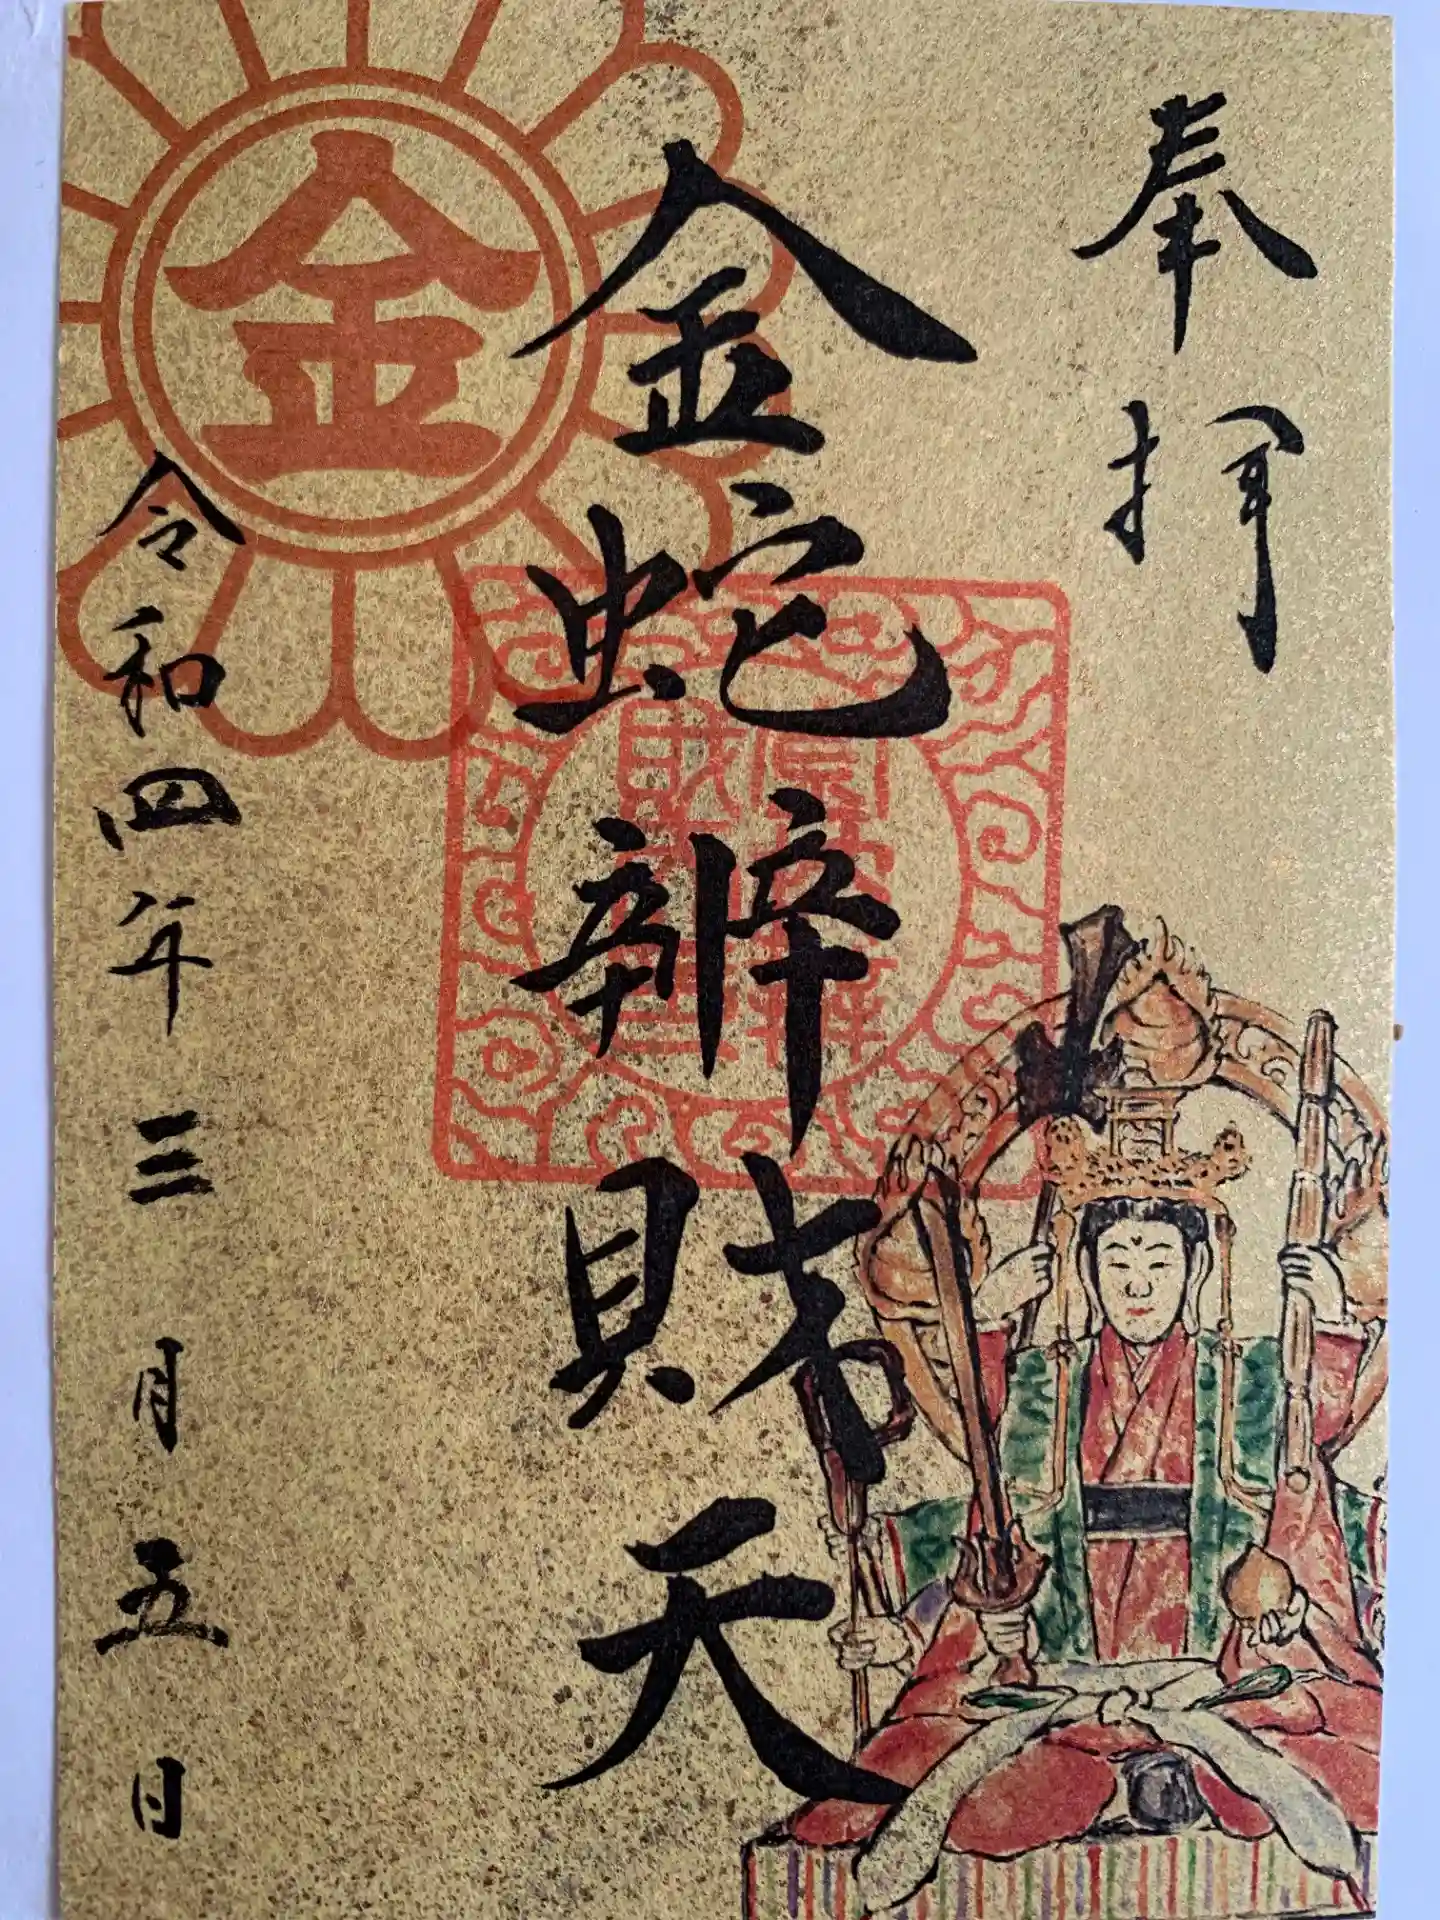 奉拝
金
金蛇辨財天
令和四年三月五日